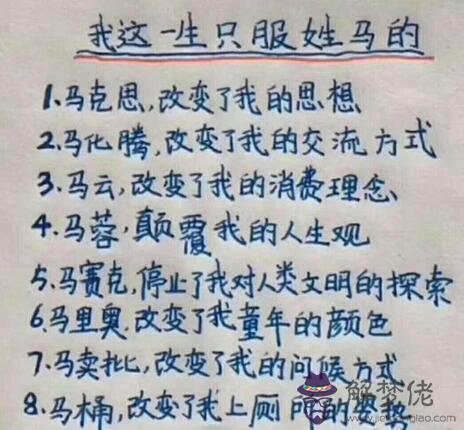 我这一生只服姓马的
1.马克思,改变了我的思想
2.马化腾,改变了我的交流方式
3.马云,改变了我的消费理念
4.马蓉,颠覆我的人生观
5.马赛克,停止了我对人类文明的探索
6.马里奥.改变了我童年的颜色
7.马卖批,改变了我的问候方式
8.马桶,改变了我上厕所的姿势
解梦佬
jiemenglao.com